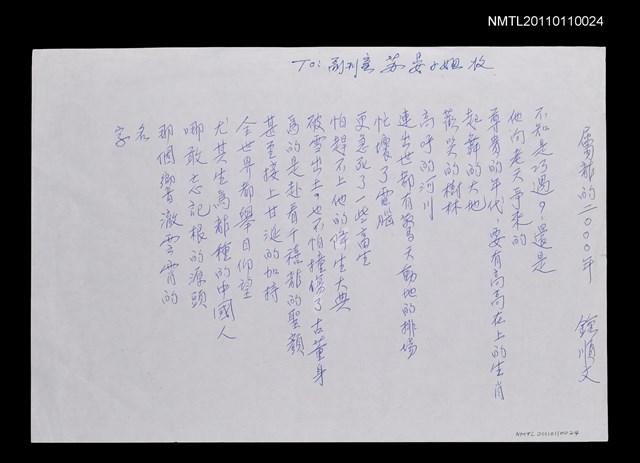 NMTL20110110024
To: 副刊室 蘇晏小姐 收
屬龍的二000年 詹順文
不知是巧遇?還是
他向老天爭來的
尊貴的年代,要有高高在上的生肖
起舞的大地
歡笑的樹林
高呼的河川
連出世都有驚天動地的排場
忙壞了電腦
更急死了一些畜生
怕趕不上他的降生大典
被雪出去也不怕撞傷了古董身
為的是赴看千禧龍的聖顏
甚至接上廿涎的加持
全世界都舉目仰望
尤其生為龍種的中國人
哪敢忘記根的源頭
那個響澈雲霄的
名
字
NMTL20110110024